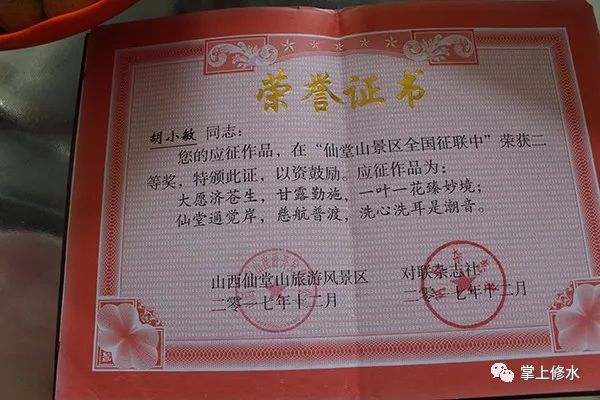 荣誉证书
胡小敏 同志：
您的应征作品，在“仙堂山景区全国征联中”荣获二
等奖，特颁此证，以资鼓励。应征作品为：
大愿济苍生，甘露勤施，一叶一花臻妙境；
仙堂通觉岸，慈航普渡，洗心洗耳是潮音。
山西仙堂山旅游风景区 对联杂志社
二〇一七年十二月 二〇一七年十二月
掌上修水